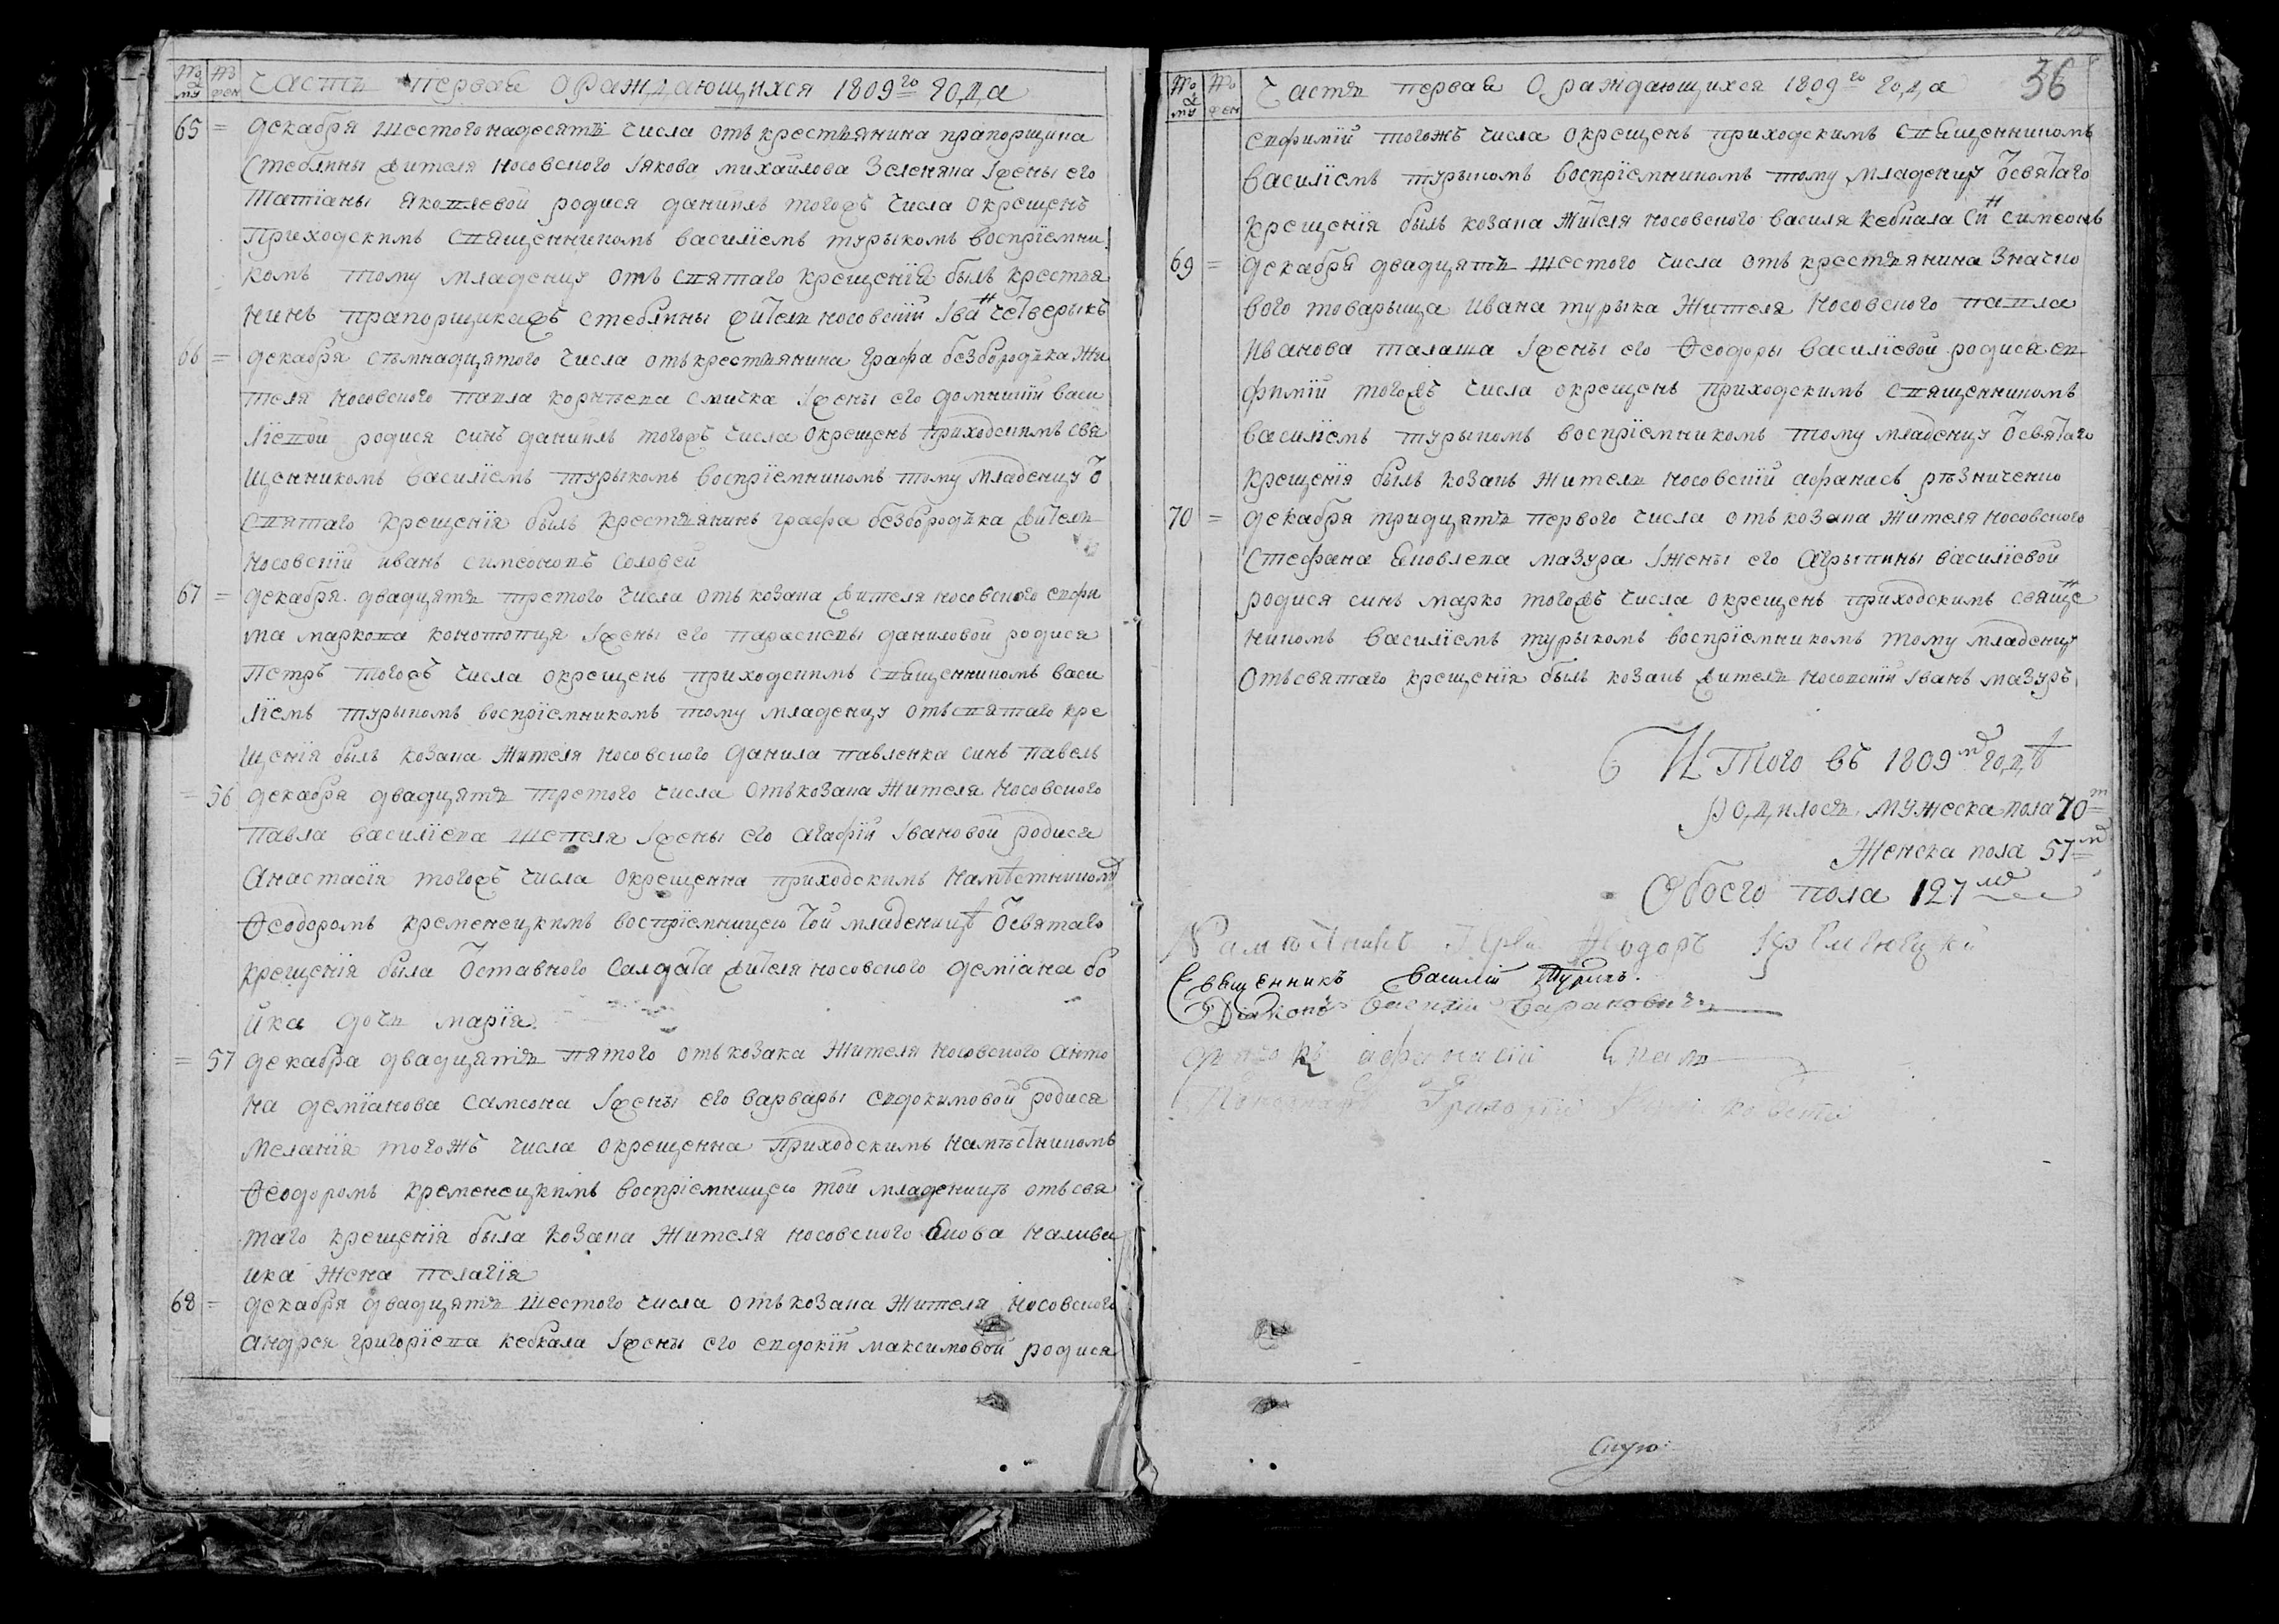 Часть первая о раждающихся 1809го года
65 = декабря шестогонадесять числа отъ крестьянина прапорщика
Стеблины жителя носовского Іякова михайлова Зеленяка Іжены его
Татіаны Яковлевой родися даниилъ тогожъ числа окрещенъ
Приходскимъ священникомъ василіемъ турыкомъ воспріемни
комъ тому младенцу отъ святаго крещенія былъ крестья
нинъ прапорщикажъ стеблины житель носовскій Іванъ четверыкъ
66 = декабря сѣмнадцятого числа отъ крестьянина графа безбородька жи
теля носовского павла корнѣева смичка Іжены его домникіи васи
ліевой родися синъ даниилъ тогожъ числа окрещенъ приходскимъ свя
щенникомъ василіемъ турыкомъ воспріемникомъ тому младенцу ѿ
святаго крещенія былъ крестьянинъ графа безбородька житель
носовскій иванъ симеоновъ соловей
67 = декабря двадцять третого числа отъ козака жителя носовского евфи
ма маркова конотопця Іжены его параскевы даниловой родися
Петръ тогожъ числа окрещенъ приходскимъ священникомъ васи
ліемъ турыкомъ воспріемникомъ тому младенцу отъ святаго кре
щенія былъ козака жителя носовского данила павленка синъ павелъ
= 56 декабря двадцять третого числа отъ козака жителя носовского
павла василіева шепеля Іжены его агафіи Івановой родися
Анастасія тогожъ числа окрещенна приходскимъ намѣстникомъ
Ѳеодоромъ кременецкимъ воспріемницею той младеницѣ ѿ святаго
крещенія была ѿставного салдата жителя носовского деміана бо
йка дочь марія
= 57 декабра двадцять пятого отъ козака жителя носовского анто
на деміанова самсона Іжены его варвары евдокимовой родися
меланія тогожъ числа окрещенна приходскимъ намѣстникомъ
Ѳеодоромъ кременецкимъ воспріемницею той младеницѣ отъ свя
таго крещенія была козака жителя носовского якова наливай
ика жена пелагія
68 = декабря двадцять шестого числа отъ козака жителя носовского
андрея григоріева кебкала Іжены его евдокіи максимовой родися
Часть первая О раждающихся 1809го года 36
евфимій тогожъ числа окрещенъ приходскимъ священникомъ
василіемъ турыкомъ воспріемникомъ тому младенцу ѿ святаго
крещенія былъ козака жителя носовского василя кебкала синъ симеонъ
69 = декабря двадцять шестого числа отъ крестьянина значко
вого товарыща ивана турыка жителя носовского павла
иванова талаша Іжены его Ѳеодоры василіевой родися ев
фимій тогожъ числа окрещенъ приходскимъ священникомъ
василіемъ турыкомъ воспріемникомъ тому младенцу ѿ святаго
крещенія былъ козакъ житель носовскій афанасъ рѣзниченко
70 = декабря тридцять первого числа отъ козака жителя носовского
Стефана Яковлева мазура Іжены его Агрыпины василіевой
родися синъ марко тогожъ числа окрещенъ приходскимъ священ
никомъ василіемъ турыкомъ воспріемникомъ тому младенцу
отъ святаго крещенія былъ козакъ житель носовскій Іванъ мазуръ
Итого въ 1809мъ годѣ
родилося мужеска пола 70т
Женска пола 57мъ
Обоего пола 127мъ
Намѣстникъ Ѳеодоръ Кременецкій
Священникъ василій Турикъ.
Діаконъ Василій
афанасій
Пономарь Григорій